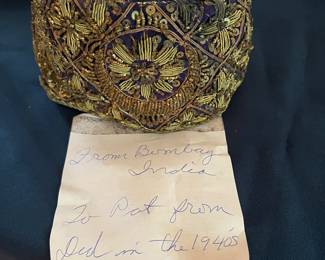 From Bombay
India
To Pat from
Dad in the 1940's